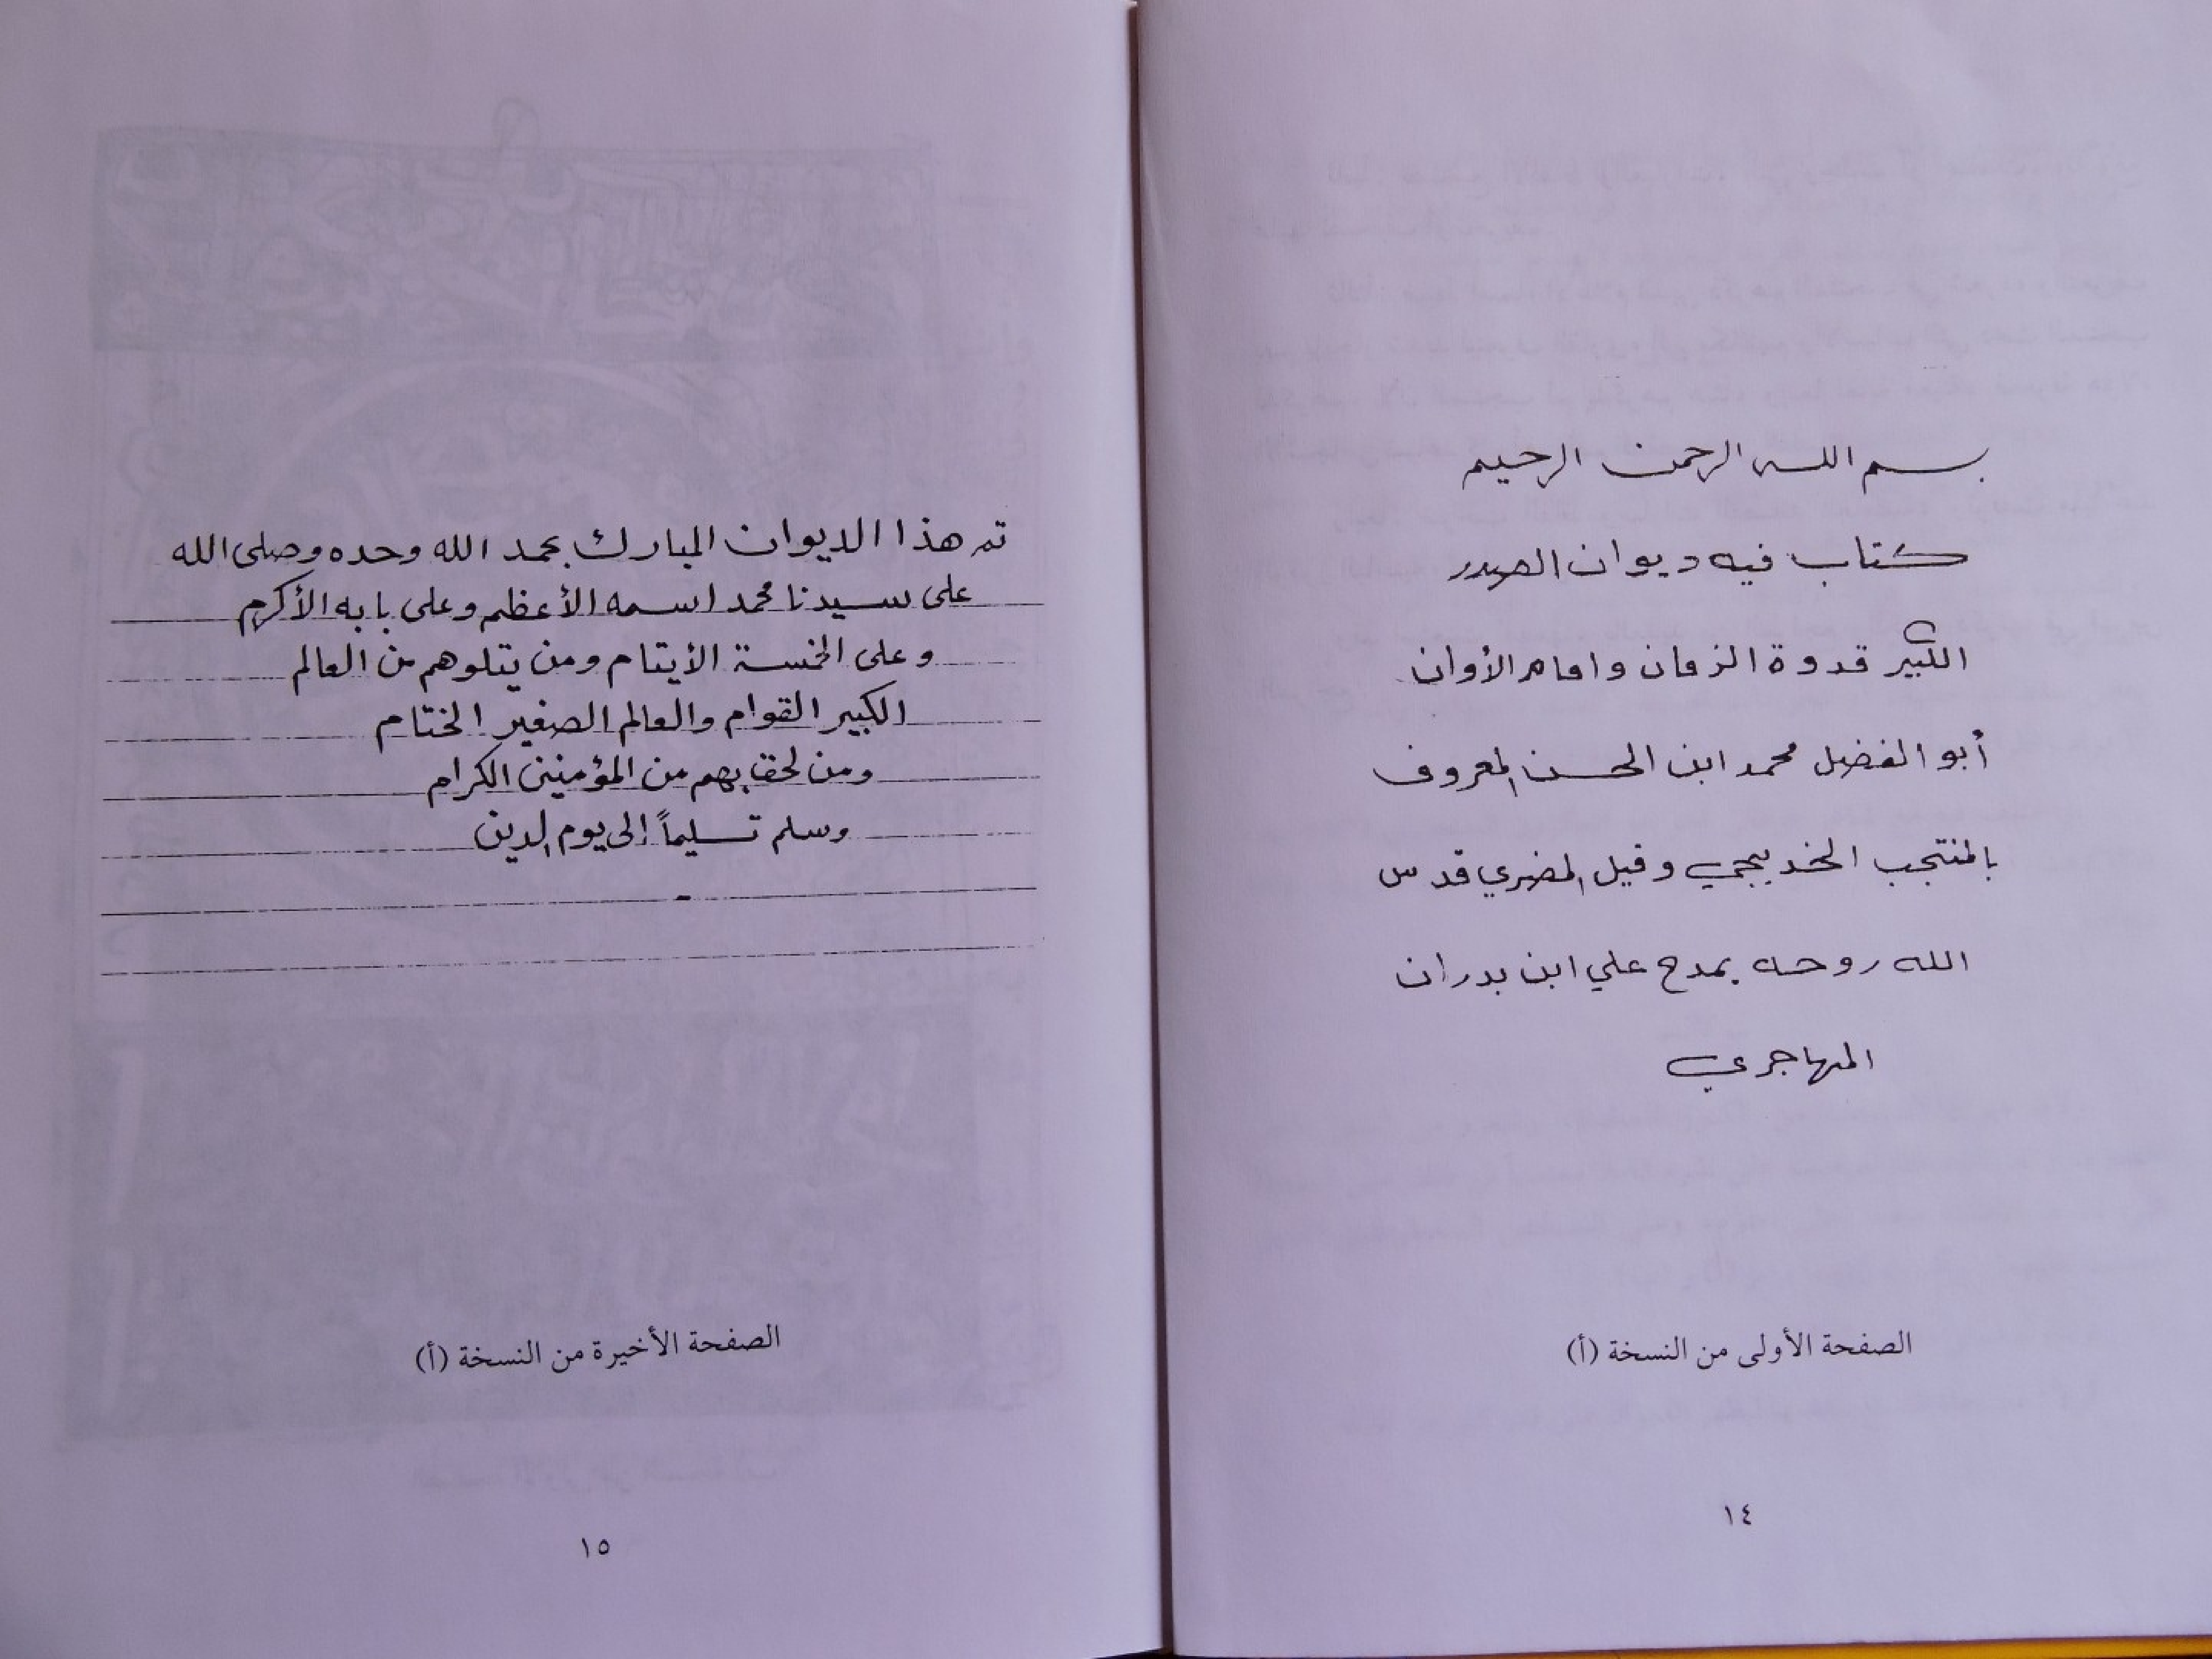 بسم الله الرحمن الرحيم
كتاب فيه ديوان الصدر
الكبير قدوة الزمان وامام الأوان
أبو الفضل محمد ابن الحسن المعروف
بالمنتجب الخديجي وقيل المضري قدس
الله روحه يمدح علي ابن بدران
المهاجري
الصفحة الأولى من النسخة (أ)
١٤
تم هذا الديوان المبارك بحمد الله وحده وصلى الله
على سيدنا محمد اسمه الأعظم وعلى بابه الأكرم
وعلى الخمسة الأيتام ومن يتلوهم من العالم
الكبير القوام والعالم الصغير الختام
ومن لحق بهم من المؤمنين الكرام
وسلم تسليماً إلى يوم الدين
الصفحة الأخيرة من النسخة (أ)
١٥